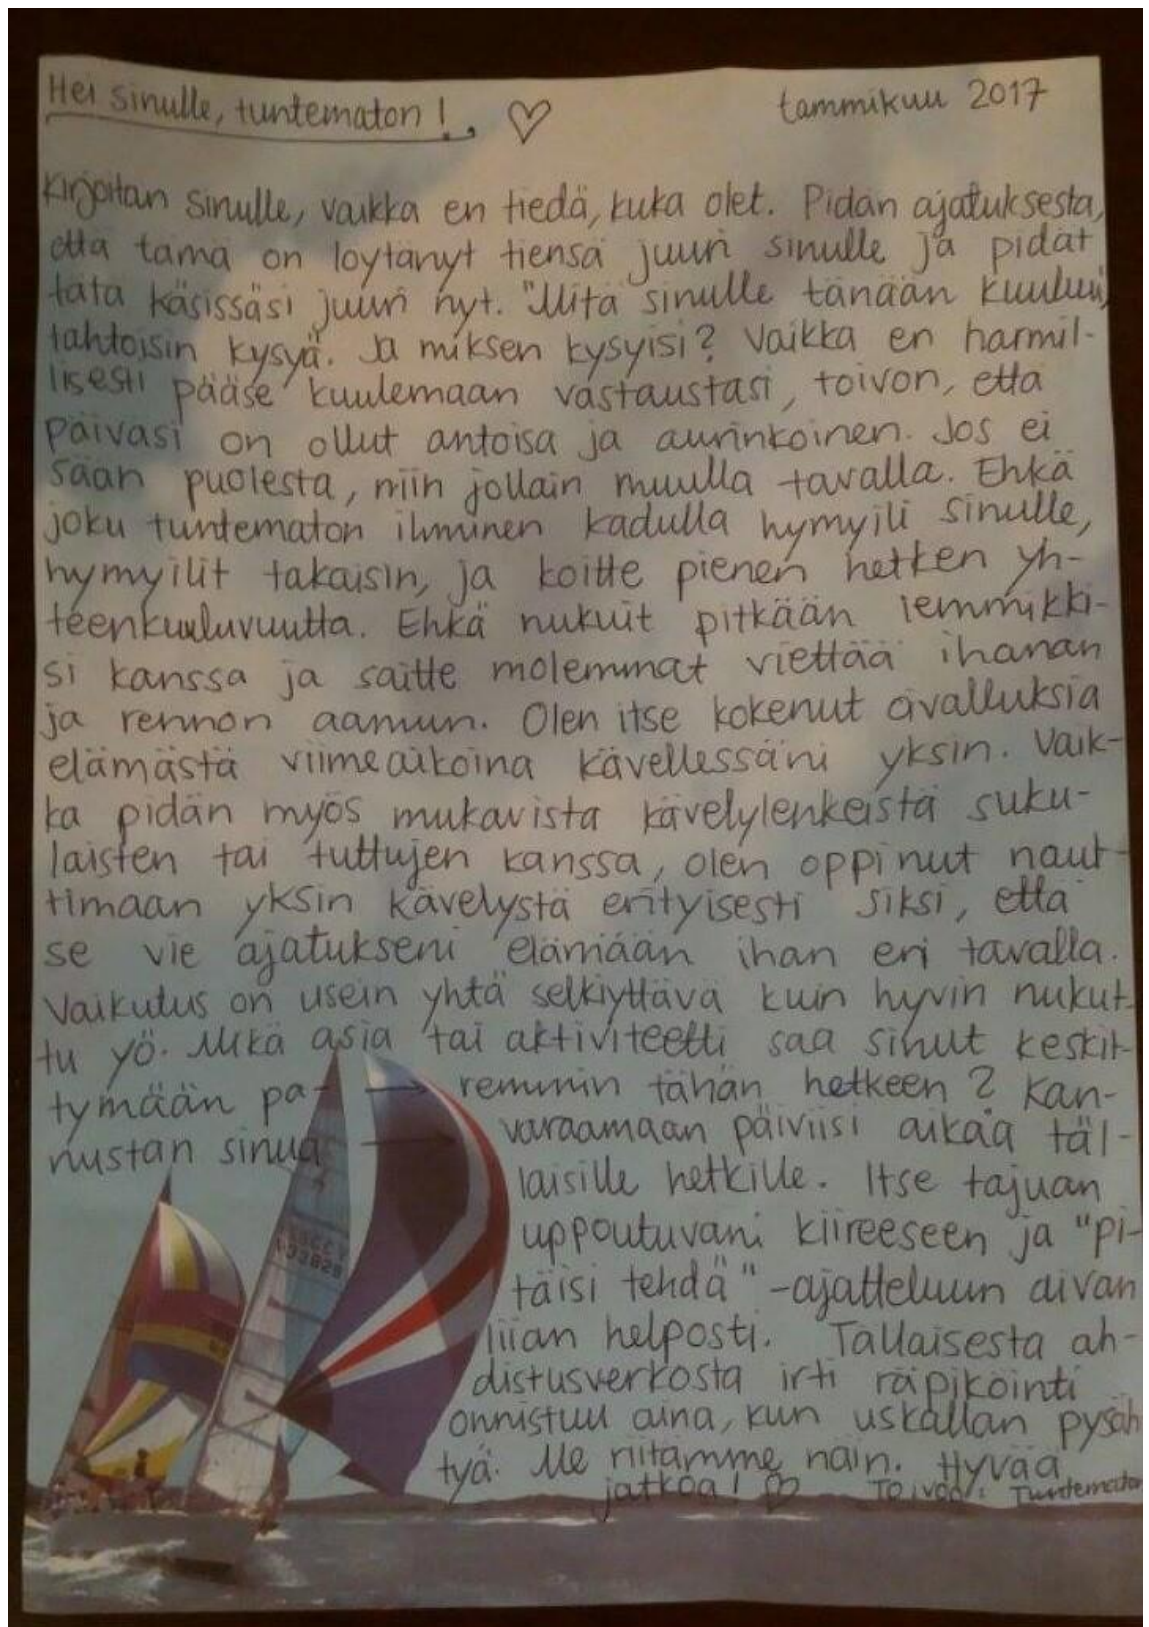 Hei sinulle, tuntematon! ♡ tammikuu 2017
Kirjoitan sinulle, vaikka en tiedä, kuka olet. Pidän ajatuksesta,
että tämä on löytänyt tiensä juuri sinulle ja pidät
tätä käsissäsi juuri nyt. "Mitä sinulle tänään kuuluu",
tahtoisin kysyä. Ja miksen kysyisi? Vaikka en harmil-
lisesti pääse kuulemaan vastaustasi, toivon, että
päiväsi on ollut antoisa ja aurinkoinen. Jos ei
sään puolesta, niin jollain muulla tavalla. Ehkä
joku tuntematon ihminen kadulla hymyili sinulle,
hymyilit takaisin, ja koitte pienen hetken yh-
teenkuuluvuutta. Ehkä nukuit pitkään lemmikki-
si kanssa ja saitte molemmat viettää ihanan
ja rennon aamun. Olen itse kokenut oivalluksia
elämästä viimeaikoina kävellessäni yksin. Vaik-
ka pidän myös mukavista kävelylenkeistä suku-
laisten tai tuttujen kanssa, olen oppinut naut-
timaan yksin kävelystä erityisesti siksi, että
se vie ajatukseni elämään ihan eri tavalla.
Vaikutus on usein yhtä selkiyttävä kuin hyvin nukut-
tu yö. Mikä asia tai aktiviteetti saa sinut keskit-
tymään pa- → remmin tähän hetkeen? Kan-
nustan sinua → varaamaan päiviisi aikaa täl-
laisille hetkille. Itse tajuan
uppoutuvani kiireeseen ja "pi-
täisi tehdä" -ajatteluun aivan
liian helposti. Tällaisesta ah-
distusverkosta irti räpiköinti
onnistuu aina, kun uskallan pysäh
tyä. Me riitämme näin. Hyvää
jatkoa! ♡ Toivoo: Tuntematon